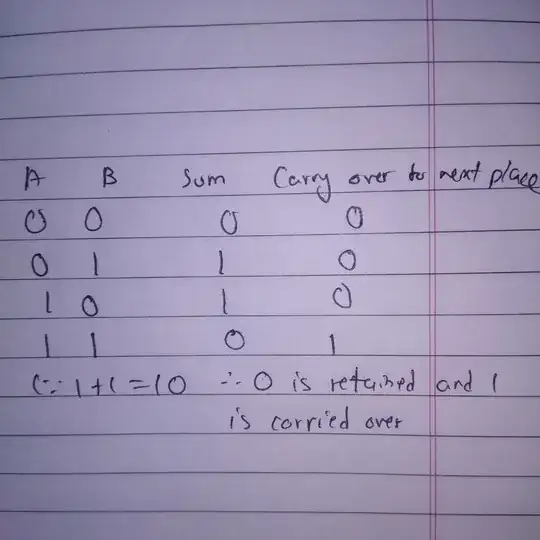 A B Sum Carry over to next place
0 0 0 0
0 1 1 0
1 0 1 0
1 1 0 1
(∵ 1+1=10 ∴ 0 is retained and 1
is carried over